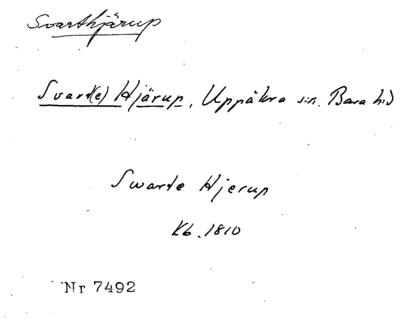 Svarthjärup
Svart(e) Hjärup, Uppåkra sn. Bara hd
Swarte Hjerup
Kb. 1810
Nr 7492